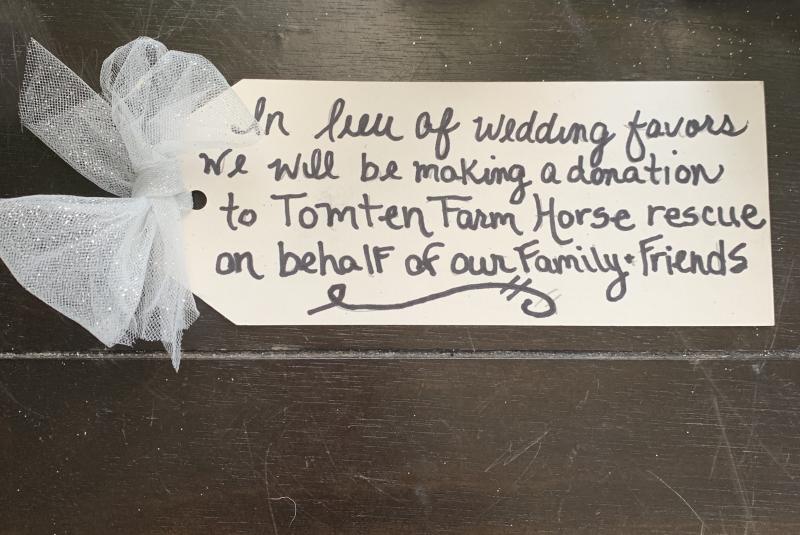 In lieu of wedding favors
we will be making a donation
to Tomten Farm Horse rescue
on behalf of our Family + Friends